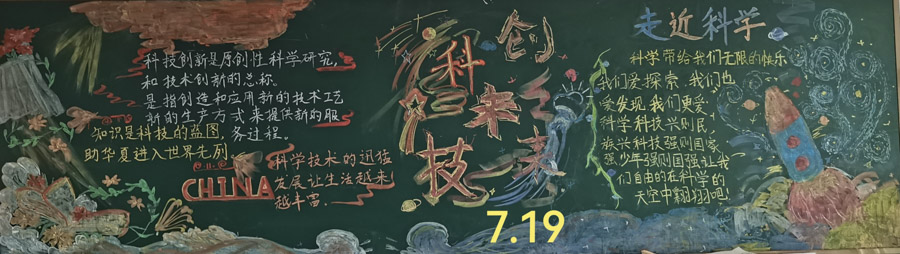 科技创新是原创性科学研究,
和技术创新的总称.
是指创造和应用新的技术工艺
新的生产方式来提供新的服
务过程。
知识是科技的蓝图,
助华夏进入世界先列
CHINA
科学技术的迅猛
发展让生活越来
越丰富.
科技
创
未来
7.19
走近科学
科学带给我们无限的快乐
我们爱探索,我们也
爱发现我们更爱
科学科技兴则民,
族兴科技强则国家
强少年强则国强让我
们自由的在科学的
天空中翱翔吧!